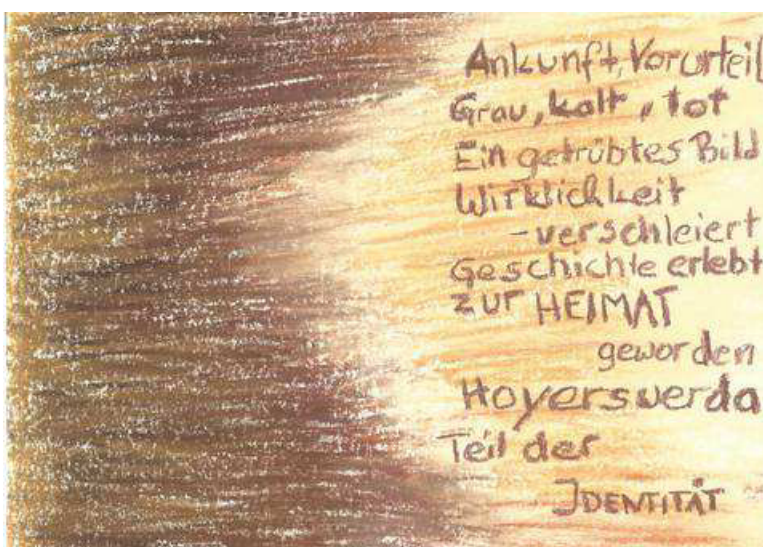 Ankunft, Vorurteil
Grau, kalt, tot
Ein getrübtes Bild
Wirklichkeit
- verschleiert
Geschichte erlebt
zur HEIMAT
geworden
Hoyerswerda
Teil der
IDENTITÄT